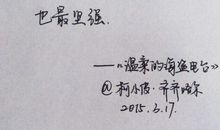 也最坚强.
——《温柔的海盗电台》
@柯小俊·齐齐哈尔
2015.3.17.